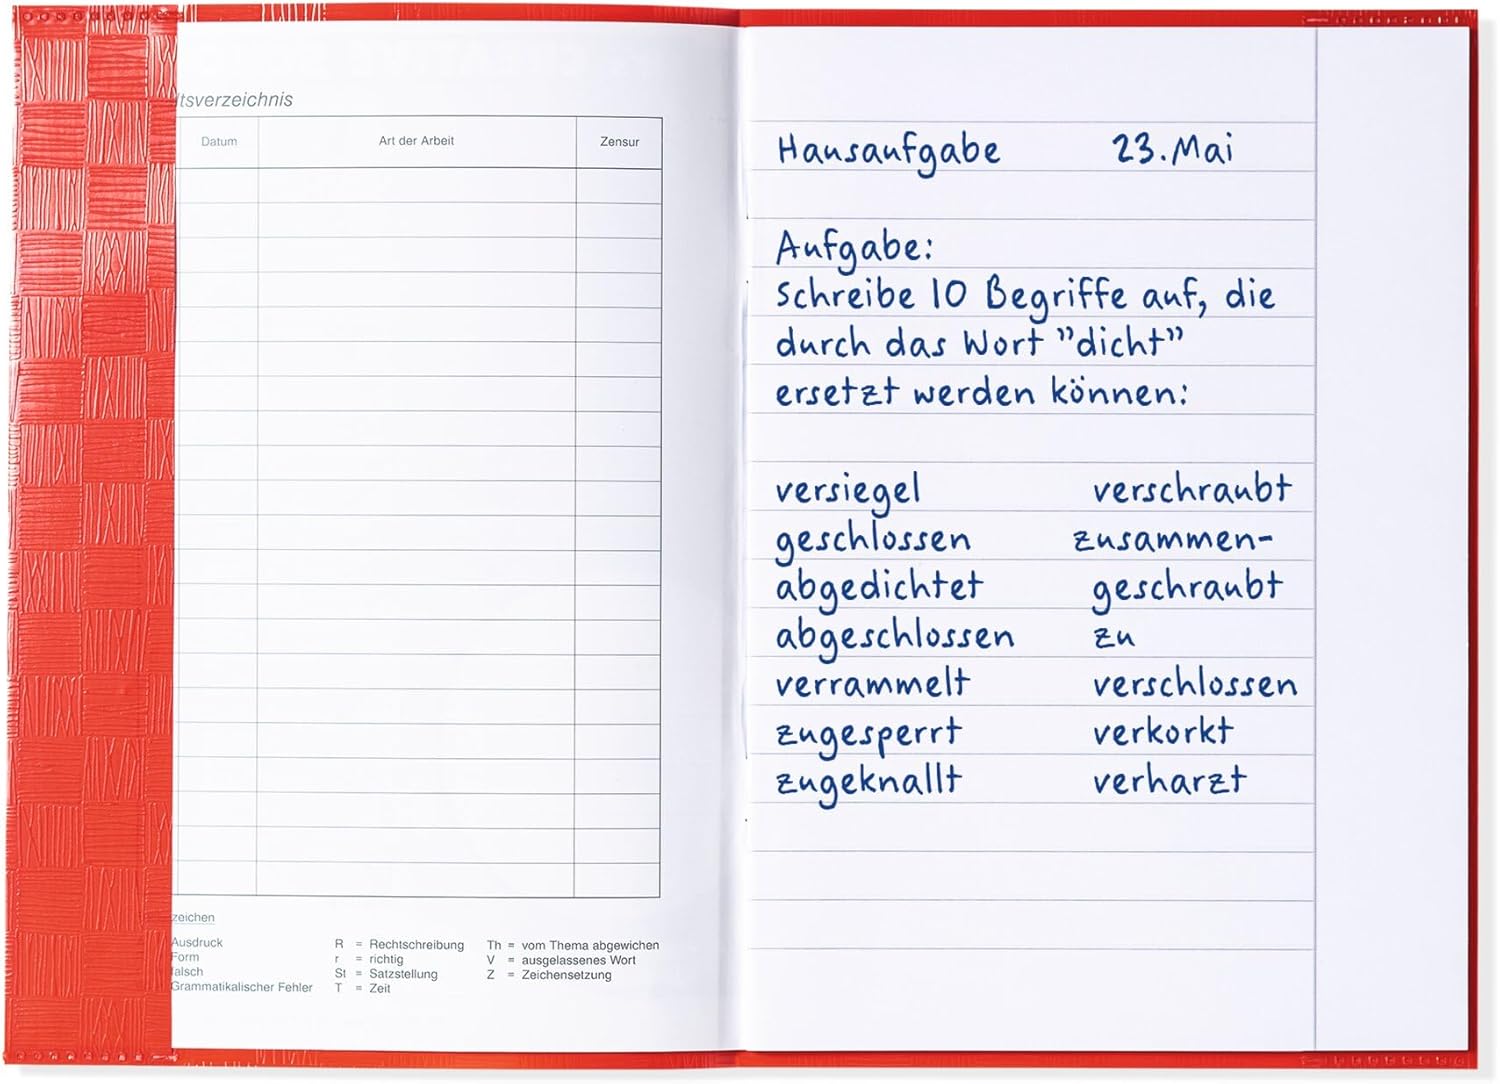 ltsverzeichnis
Datum Art der Arbeit Zensur
zeichen
Ausdruck R = Rechtschreibung Th = vom Thema abgewichen
Form r = richtig V = ausgelassenes Wort
falsch St = Satzstellung Z = Zeichensetzung
Grammatikalischer Fehler T = Zeit
Hausaufgabe 23. Mai
Aufgabe:
Schreibe 10 Begriffe auf, die
durch das Wort "dicht"
ersetzt werden können:
versiegel verschraubt
geschlossen zusammen-
abgedichtet geschraubt
abgeschlossen zu
verrammelt verschlossen
zugesperrt verkorkt
zugeknallt verharzt